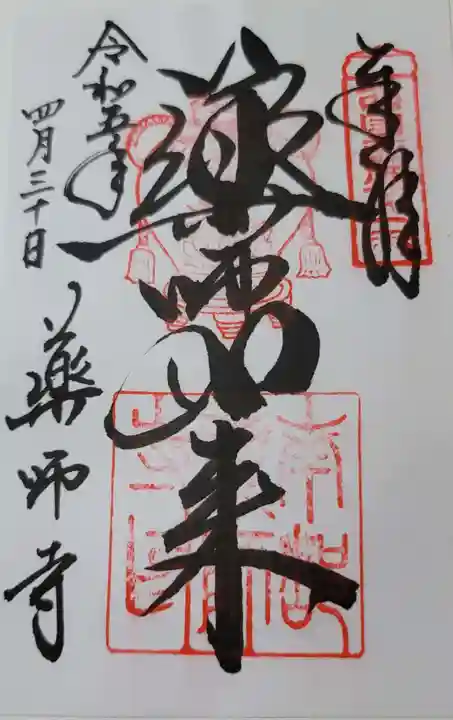 奉拝
薬師如来
令和五年
四月三十日
薬師寺